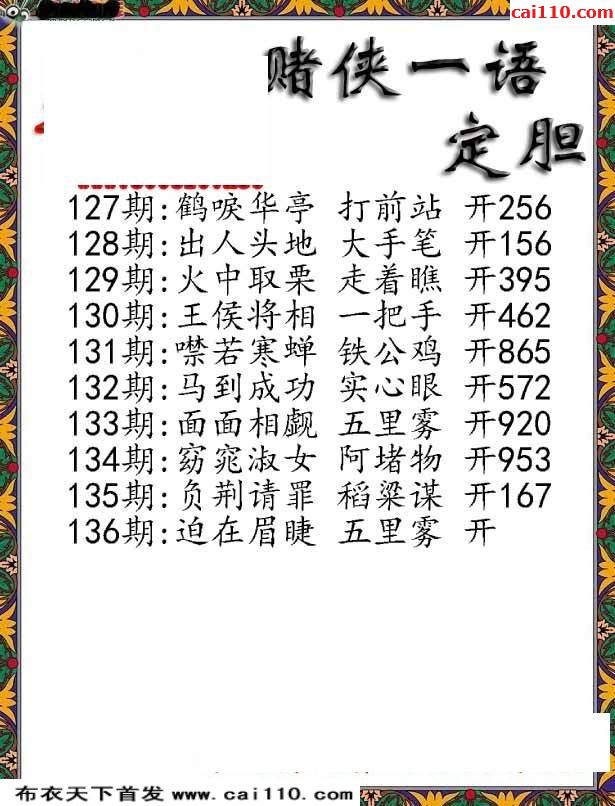 cai110.com
赌侠一语
定胆
127期:鹤唳华亭 打前站 开256
128期:出人头地 大手笔 开156
129期:火中取栗 走着瞧 开395
130期:王侯将相 一把手 开462
131期:噤若寒蝉 铁公鸡 开865
132期:马到成功 实心眼 开572
133期:面面相觑 五里雾 开920
134期:窈窕淑女 阿堵物 开953
135期:负荆请罪 稻粱谋 开167
136期:迫在眉睫 五里雾 开
布衣天下首发 www.cai110.com